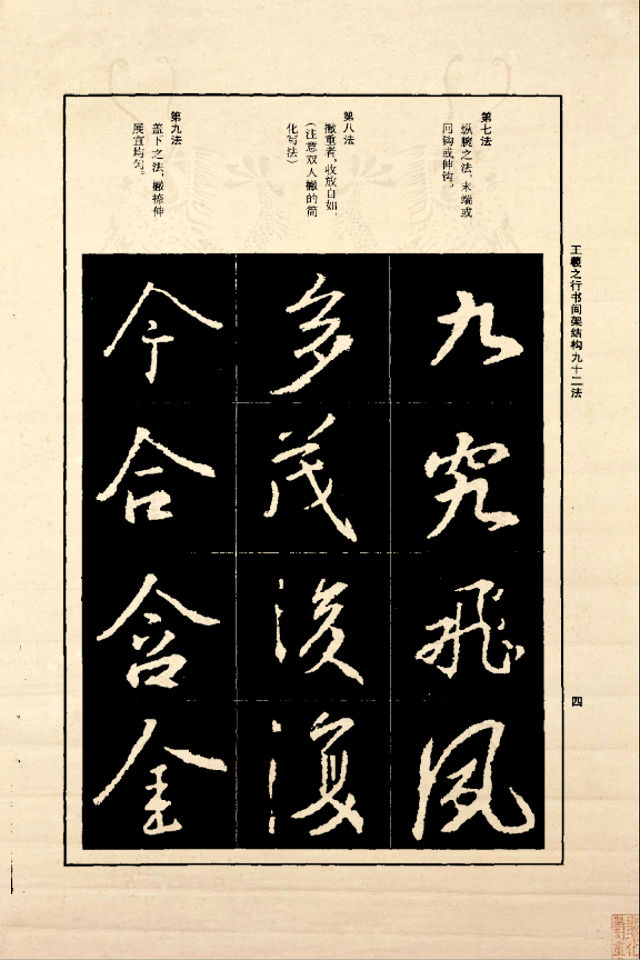 王羲之行书间架结构九十二法
第七法
纵腕之法，末端或
回钩或伸钩。
九
究
飛
風
第八法
撇重者，收放自如，
（注意双人撇的简
化写法）
多
茂
後
復
第九法
盖下之法，撇捺伸
展宜均匀。
今
合
含
金
四